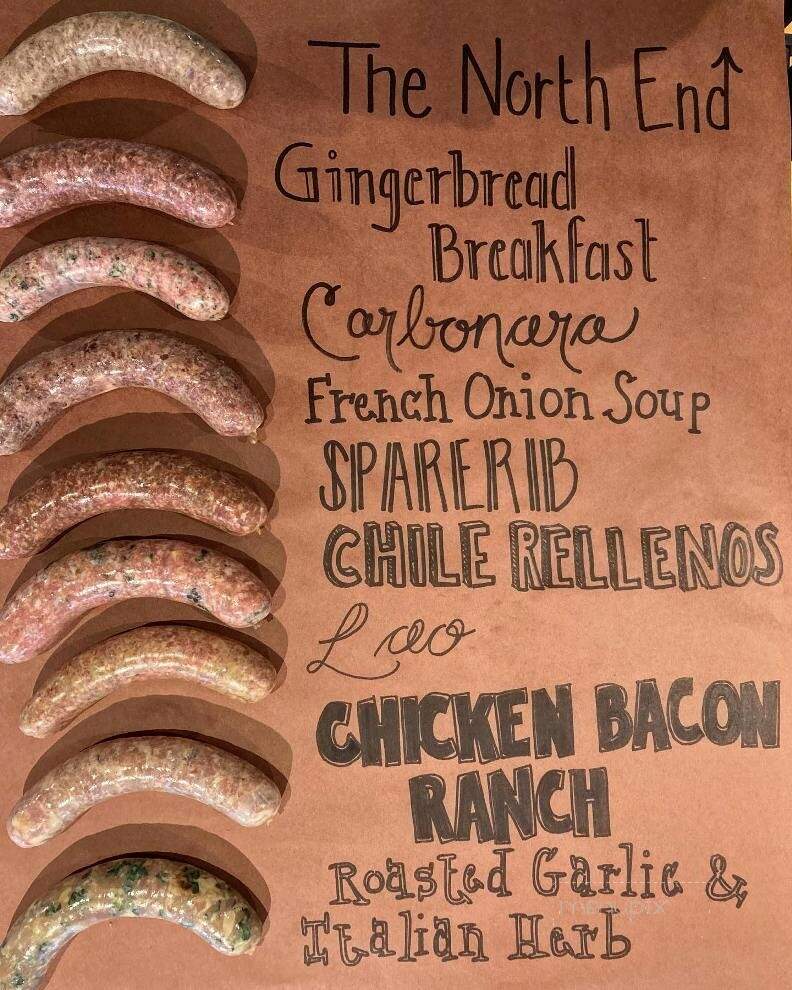 The North End
Gingerbread
Breakfast
Carbonara
French Onion Soup
SPARERIB
CHILE RELLENOS
Lao
CHICKEN BACON
RANCH
Roasted Garlic &
Italian Herb